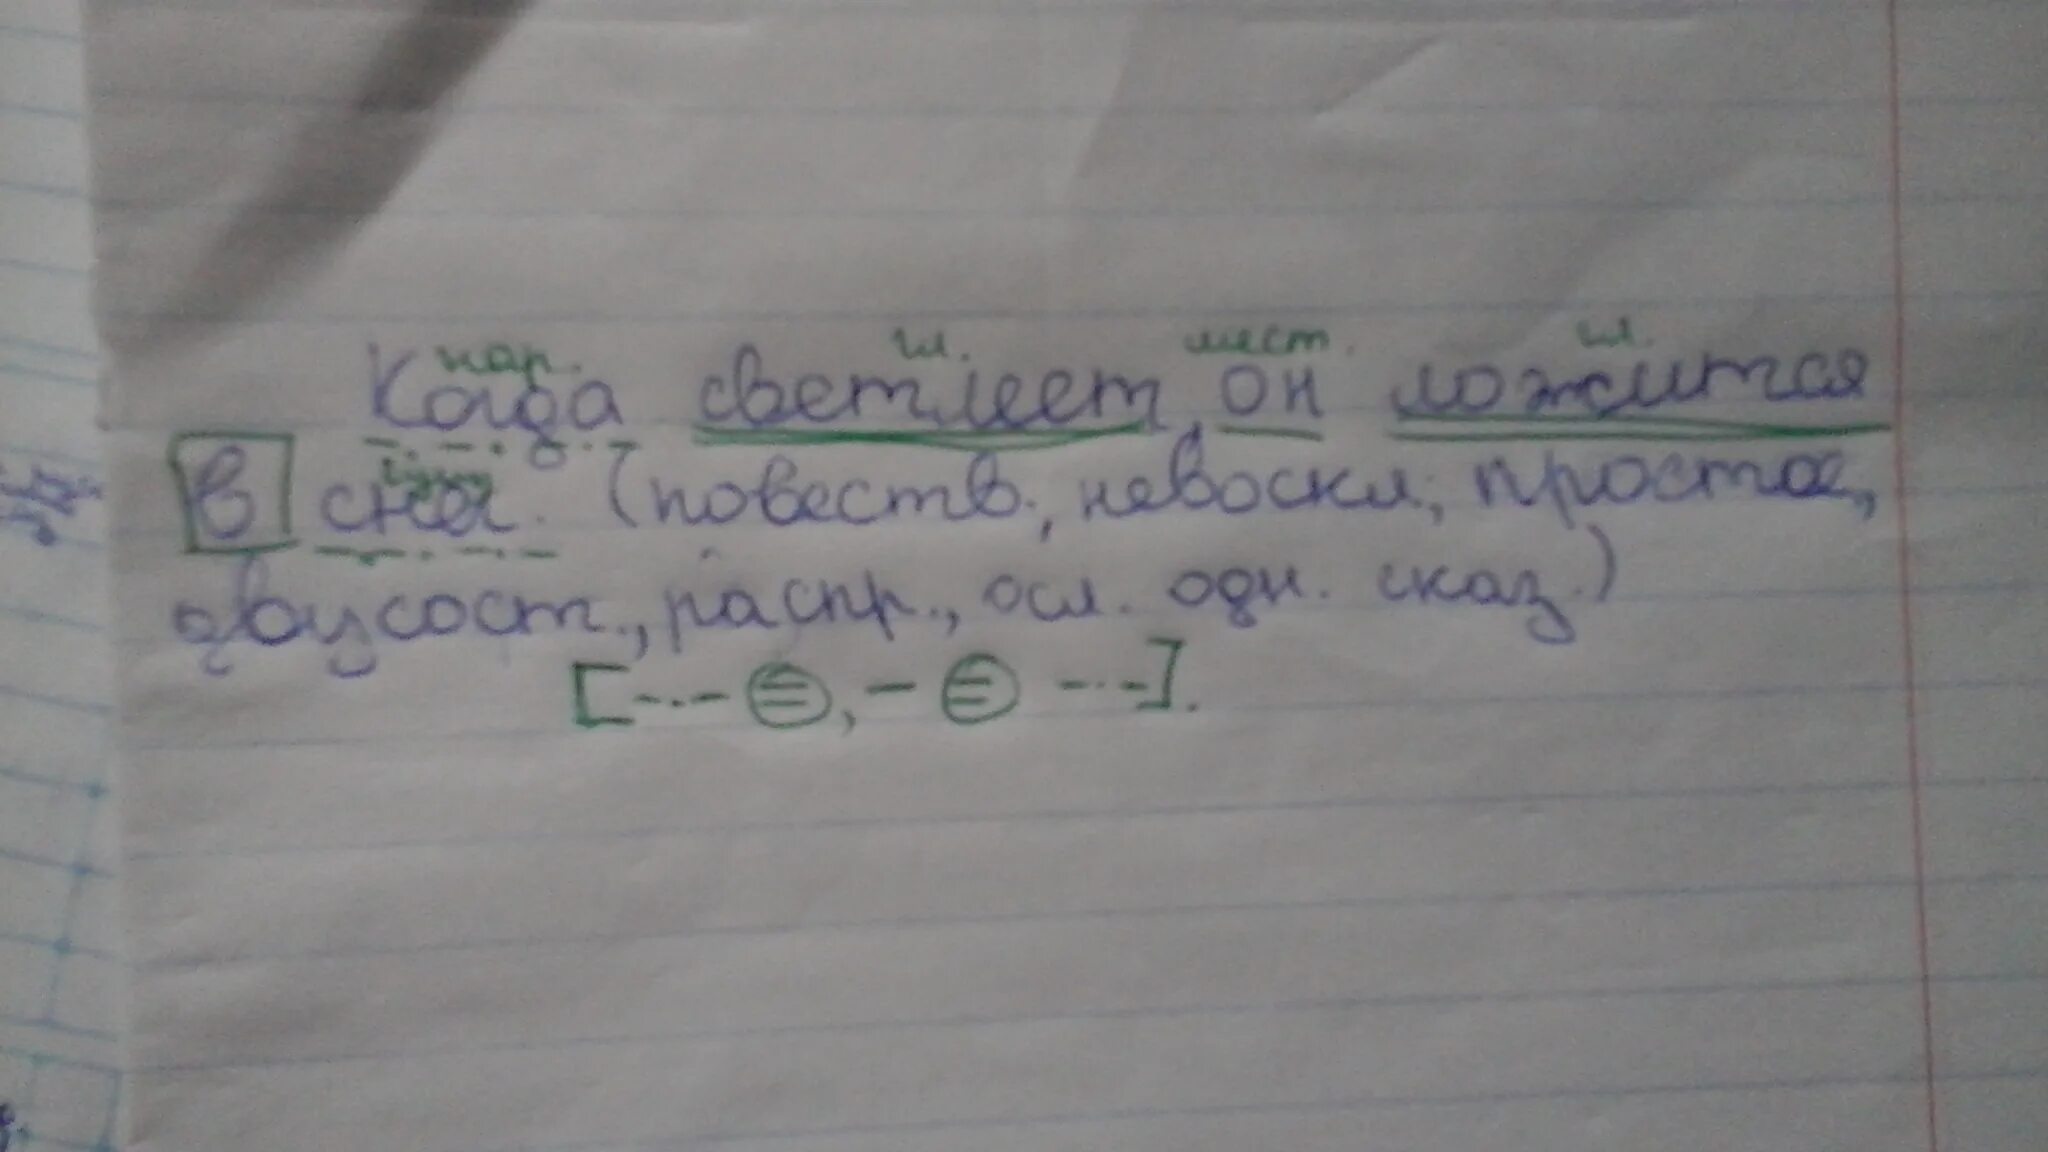 нар. гл. мест. гл.
Когда светлеет, он ложится
сущ.
в снег. (повеств., невоскл., простое,
двусост., распр., осл. одн. сказ.)